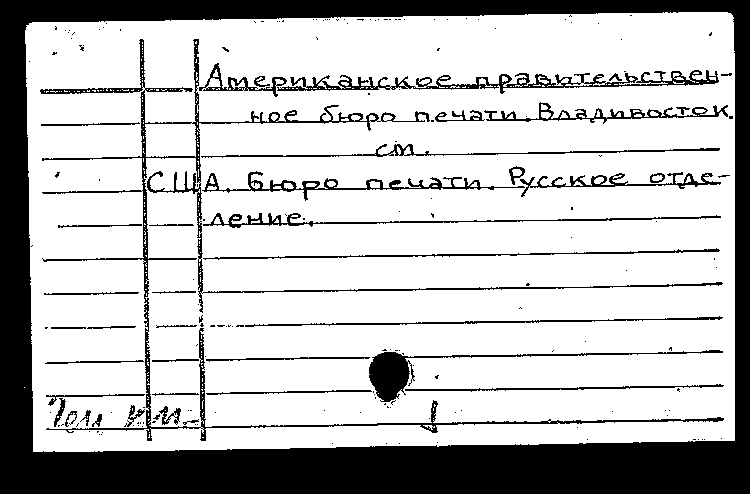 Американское правительствен-
ное бюро печати. Владивосток.
см.
США. Бюро печати. Русское отде-
ление.